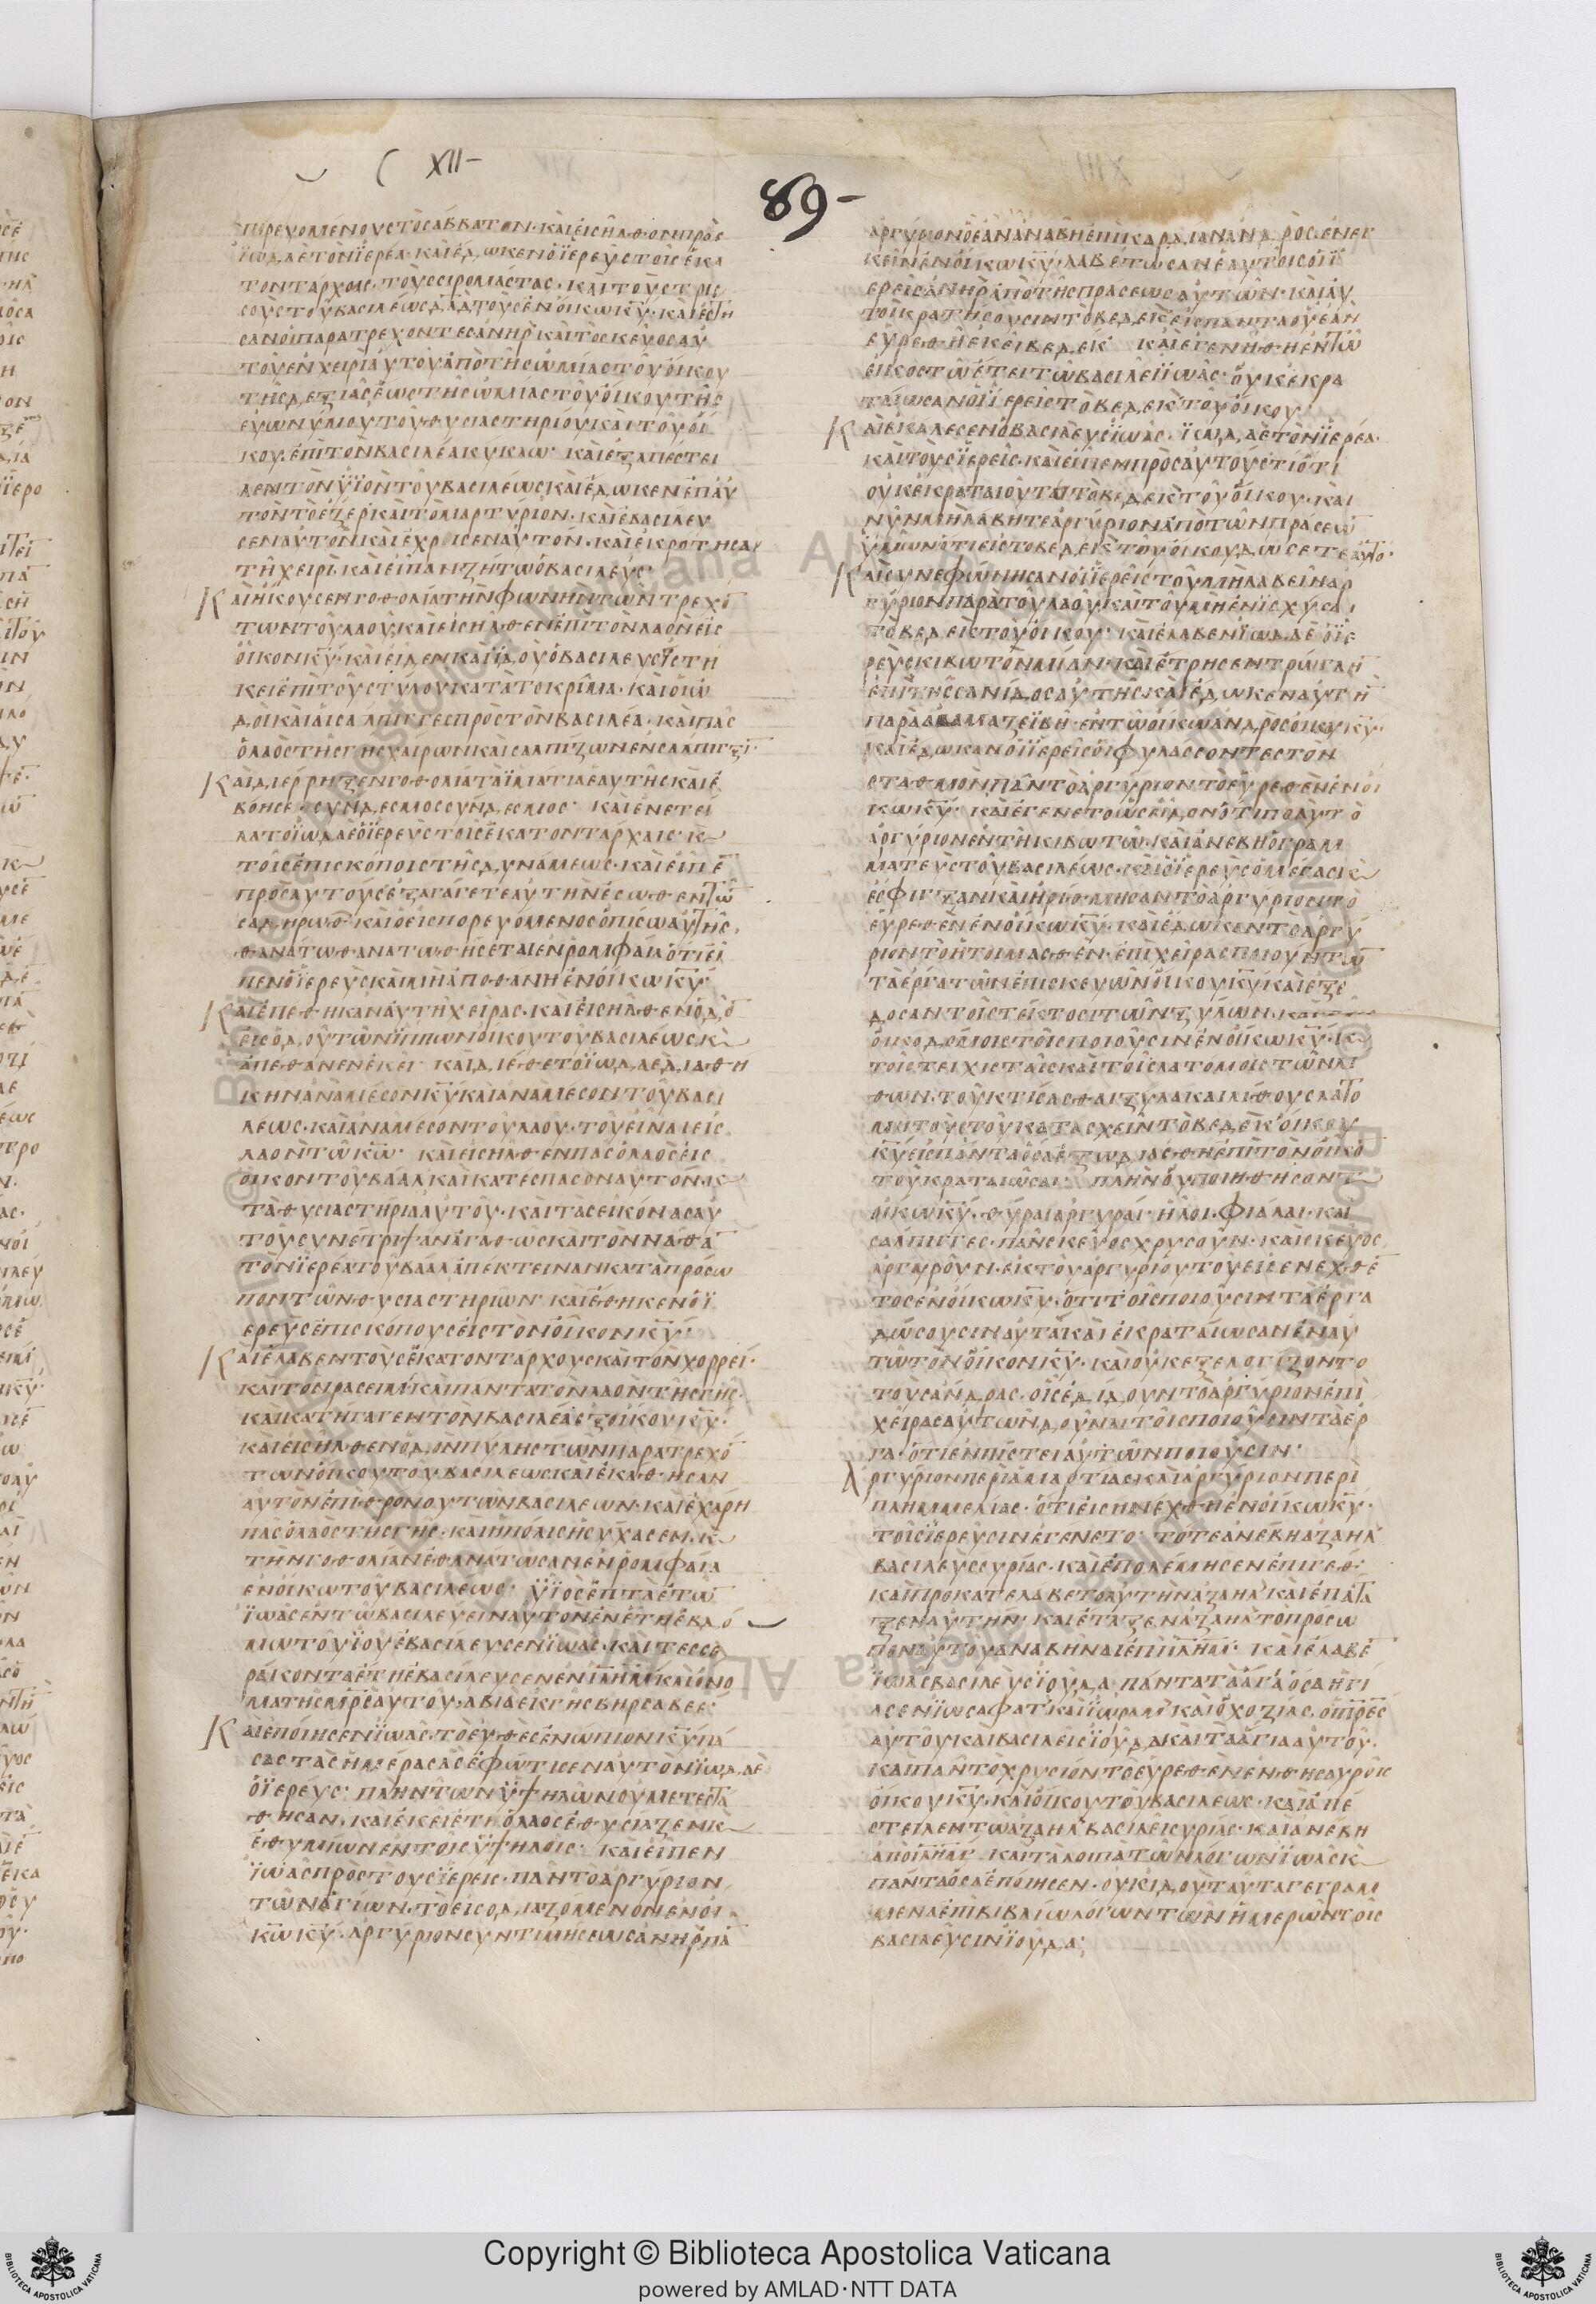 XII-
89-
ΠΟΡΕΥΟΜΕΝΟΥΣΤΟΣΑΒΒΑΤΟΝ·ΚΑΙΕΙΣΗΛΘΟΝΠΡΟΣ
ΪΩΔΑΕΤΟΝΪΕΡΕΑ·ΚΑΙΕΔΩΚΕΝΟΪΕΡΕΥΣΤΟΙΣΕΚΑ
ΤΟΝΤΑΡΧΟΙΣ·ΤΟΥΣΣΙΡΟΜΑΣΤΑΣ·ΚΑΙΤΟΥΣΤΡΙΣ
ΣΟΥΣΤΟΥΒΑΣΙΛΕΩΣΔΑΔΤΟΥΣΕΝΟΙΚΩΚΥ·ΚΑΙΕΣΤΗ
ΣΑΝΟΙΠΑΡΑΤΡΕΧΟΝΤΕΣΑΝΗΡΚΑΙΤΟΣΚΕΥΟΣΑΥ
ΤΟΥΕΝΧΕΙΡΙΑΥΤΟΥΑΠΟΤΗΣΩΜΙΑΣΤΟΥΟΙΚΟΥ
ΤΗΣΔΕΞΙΑΣΕΩΣΤΗΣΩΜΙΑΣΤΟΥΟΙΚΟΥΤΗΣ
ΕΥΩΝΥΜΟΥΤΟΥΘΥΣΙΑΣΤΗΡΙΟΥΚΑΙΤΟΥΟΙ
ΚΟΥ·ΕΠΙΤΟΝΒΑΣΙΛΕΑΚΥΚΛΩ· ΚΑΙΕΞΑΠΕΣΤΕΙ
ΛΕΝΤΟΝΫΪΟΝΤΟΥΒΑΣΙΛΕΩΣΚΑΙΕΔΩΚΕΝΕΠΑΥ
ΤΟΝΤΟΕΞΕΡΚΑΙΤΟΜΑΡΤΥΡΙΟΝ·ΚΑΙΕΒΑΣΙΛΕΥ
ΣΕΝΑΥΤΟΝΚΑΙΕΧΡΙΣΕΝΑΥΤΟΝ·ΚΑΙΕΚΡΟΤΗΣΑ
ΤΗΧΕΙΡΙΚΑΙΕΙΠΑΝΖΗΤΩΟΒΑΣΙΛΕΥΣ·
ΚΑΙΗΚΟΥΣΕΝΓΟΘΟΛΙΑΤΗΝΦΩΝΗΝΤΩΝΤΡΕΧΟ
ΤΩΝΤΟΥΛΑΟΥΚΑΙΕΙΣΗΛΘΕΝΕΠΙΤΟΝΛΑΟΝΕΙΣ
ΟΙΚΟΝΚΥ·ΚΑΙΕΙΔΕΝΚΑΙΪΔΟΥΟΒΑΣΙΛΕΥΣΪΣΤΗ
ΚΕΙΕΠΙΤΟΥΣΤΥΛΟΥΚΑΤΑΤΟΚΡΙΜΑ·ΚΑΙΟΙΩ
ΔΟΙΚΑΙΑΙΣΑΛΠΙΓΓΕΣΠΡΟΣΤΟΝΒΑΣΙΛΕΑ·ΚΑΙΠΑΣ
ΟΛΑΟΣΤΗΣΓΗΣΧΑΙΡΩΝΚΑΙΣΑΛΠΙΖΩΝΕΝΣΑΛΠΙΓΞΙ·
ΚΑΙΔΙΕΡΡΗΞΕΝΓΟΘΟΛΙΑΤΑΪΜΑΤΙΑΕΑΥΤΗΣΚΑΙΕ
ΒΟΗΣΕ·ΣΥΝΔΕΣΜΟΣΣΥΝΔΕΣΜΟΣ· ΚΑΙΕΝΕΤΕΙ
ΛΑΤΟΪΩΔΑΕΟΪΕΡΕΥΣΤΟΙΣΕΚΑΤΟΝΤΑΡΧΑΙΣ·Κ
ΤΟΙΣΕΠΙΣΚΟΠΟΙΣΤΗΣΔΥΝΑΜΕΩΣ·ΚΑΙΕΙΠΕ
ΠΡΟΣΑΥΤΟΥΣΕΞΑΓΑΓΕΤΕΑΥΤΗΝΕΣΩΘΕΝΤΩ
ΣΑΔΗΡΩΘ·ΚΑΙΟΕΙΣΠΟΡΕΥΟΜΕΝΟΣΟΠΙΣΩΑΥΤΗΣ·
ΘΑΝΑΤΩΘΑΝΑΤΩΘΗΣΕΤΑΙΕΝΡΟΜΦΑΙΑΟΤΙΕΙ
ΠΕΝΟΪΕΡΕΥΣΚΑΙΜΗΑΠΟΘΑΝΗΕΝΟΙΚΩΚΥ·
ΚΑΙΕΠΕΘΗΚΑΝΑΥΤΗΧΕΙΡΑΣ·ΚΑΙΕΙΣΗΛΘΕΝΟΔΟ
ΕΙΣΟΔΟΥΤΩΝΪΠΠΩΝΟΙΚΟΥΤΟΥΒΑΣΙΛΕΩΣ·Κ
ΑΠΕΘΑΝΕΝΕΚΕΙ· ΚΑΙΔΙΕΘΕΤΟΪΩΔΑΕΔΙΑΘΗ
ΚΗΝΑΝΑΜΕΣΟΝΚΥΚΑΙΑΝΑΜΕΣΟΝΤΟΥΒΑΣΙ
ΛΕΩΣ·ΚΑΙΑΝΑΜΕΣΟΝΤΟΥΛΑΟΥ·ΤΟΥΕΙΝΑΙΕΙΣ
ΛΑΟΝΤΩΚΩ· ΚΑΙΕΙΣΗΛΘΕΝΠΑΣΟΛΑΟΣΕΙΣ
ΟΙΚΟΝΤΟΥΒΑΑΛΚΑΙΚΑΤΕΣΠΑΣΟΝΑΥΤΟΝ·Κ
ΤΑΘΥΣΙΑΣΤΗΡΙΑΑΥΤΟΥ·ΚΑΙΤΑΣΕΙΚΟΝΑΣΑΥ
ΤΟΥΣΥΝΕΤΡΙΨΑΝΑΓΑΘΩΣΚΑΙΤΟΝΝΑΘΑ
ΤΟΝΪΕΡΕΑΤΟΥΒΑΑΛΑΠΕΚΤΕΙΝΑΝΚΑΤΑΠΡΟΣΩ
ΠΟΝΤΩΝΘΥΣΙΑΣΤΗΡΙΩΝ· ΚΑΙΕΘΗΚΕΝΟΪ
ΕΡΕΥΣΕΠΙΣΚΟΠΟΥΣΕΙΣΤΟΝΟΙΚΟΝΚΥ·
ΚΑΙΕΛΑΒΕΝΤΟΥΣΕΚΑΤΟΝΤΑΡΧΟΥΣΚΑΙΤΟΝΧΟΡΡΕΙ·
ΚΑΙΤΟΝΡΑΣΕΙΜΚΑΙΠΑΝΤΑΤΟΝΛΑΟΝΤΗΣΓΗΣ·
ΚΑΙΚΑΤΗΓΑΓΕΝΤΟΝΒΑΣΙΛΕΑΕΞΟΙΚΟΥΚΥ·
ΚΑΙΕΙΣΗΛΘΕΝΟΔΟΝΠΥΛΗΣΤΩΝΠΑΡΑΤΡΕΧΟ
ΤΩΝΟΙΚΟΥΤΟΥΒΑΣΙΛΕΩΣΚΑΙΕΚΑΘΗΣΑΝ
ΑΥΤΟΝΕΠΙΘΡΟΝΟΥΤΩΝΒΑΣΙΛΕΩΝ·ΚΑΙΕΧΑΡΗ
ΠΑΣΟΛΑΟΣΤΗΣΓΗΣ·ΚΑΙΗΠΟΛΙΣΗΣΥΧΑΣΕΝ·Κ
ΤΗΝΓΟΘΟΛΙΑΝΕΘΑΝΑΤΩΣΑΝΕΝΡΟΜΦΑΙΑ
ΕΝΟΙΚΩΤΟΥΒΑΣΙΛΕΩΣ· ΫΪΟΣΕΠΤΑΕΤΩ
ΪΩΑΣΕΝΤΩΒΑΣΙΛΕΥΕΙΝΑΥΤΟΝΕΝΕΤΗΕΒΔΟ
ΜΩΤΟΥΪΟΥΕΒΑΣΙΛΕΥΣΕΝΪΩΑΣ·ΚΑΙΤΕΣΣΑ
ΡΑΚΟΝΤΑΕΤΗΕΒΑΣΙΛΕΥΣΕΝΕΝΙΛΗΜΚΑΙΟΝΟ
ΜΑΤΗΣΜΡΣΑΥΤΟΥ·ΑΒΙΑΕΚΓΗΣΒΗΡΣΑΒΕΕ·
ΚΑΙΕΠΟΙΗΣΕΝΪΩΑΣ·ΤΟΕΥΘΕΣΕΝΩΠΙΟΝΚΥΠΑ
ΣΑΣΤΑΣΗΜΕΡΑΣΑΣΕΦΩΤΙΣΕΝΑΥΤΟΝΪΩΔΑΕ
ΟΪΕΡΕΥΣ· ΠΛΗΝΤΩΝΥΨΗΛΩΝΟΥΜΕΤΕΣΤΑ
ΘΗΣΑΝ·ΚΑΙΕΚΕΙΕΤΙΟΛΑΟΣΕΘΥΣΙΑΖΕΝΚ
ΕΘΥΜΙΩΝΕΝΤΟΙΣΥΨΗΛΟΙΣ· ΚΑΙΕΙΠΕΝ
ΪΩΑΣΠΡΟΣΤΟΥΣΪΕΡΕΙΣ·ΠΑΝΤΟΑΡΓΥΡΙΟΝ
ΤΩΝΑΓΙΩΝ·ΤΟΕΙΣΟΔΙΑΖΟΜΕΝΟΝΕΝΟΙ
ΚΩΚΥ·ΑΡΓΥΡΙΟΝΣΥΝΤΙΜΗΣΕΩΣΑΝΗΡΠΑ
ΑΡΓΥΡΙΟΝΟΕΑΝΑΝΑΒΗΕΠΙΚΑΡΔΙΑΝΑΝΔΡΟΣ·ΕΝΕΓ
ΚΕΙΝΕΝΟΙΚΩΚΥ·ΛΑΒΕΤΩΣΑΝΕΑΥΤΟΙΣΟΙΪ
ΕΡΕΙΣΑΝΗΡΑΠΟΤΗΣΠΡΑΣΕΩΣΑΥΤΩΝ·ΚΑΙΑΥ
ΤΟΙΚΡΑΤΗΣΟΥΣΙΝΤΟΒΕΔΕΚΕΙΣΠΑΝΤΑΟΥΕΑΝ
ΕΥΡΕΘΗΕΚΕΙΒΕΔΕΚ· ΚΑΙΕΓΕΝΗΘΗΕΝΤΩ
ΕΙΚΟΣΤΩΕΤΕΙΤΩΒΑΣΙΛΕΙΪΩΑΣ·ΟΥΚΕΚΡΑ
ΤΑΙΩΣΑΝΟΙΪΕΡΕΙΣΤΟΒΕΔΕΚΤΟΥΟΙΚΟΥ·
ΚΑΙΕΚΑΛΕΣΕΝΟΒΑΣΙΛΕΥΣΪΩΑΣ·ΪΩΔΑΕΤΟΝΪΕΡΕΑ·
ΚΑΙΤΟΥΣΪΕΡΕΙΣ·ΚΑΙΕΙΠΕΝΠΡΟΣΑΥΤΟΥΣΤΙΟΤΙ
ΟΥΚΕΚΡΑΤΑΙΟΥΤΑΙΤΟΒΕΔΕΚΤΟΥΟΙΚΟΥ·ΚΑΙ
ΝΥΝΜΗΛΑΒΗΤΕΑΡΓΥΡΙΟΝΑΠΟΤΩΝΠΡΑΣΕΩ
ΫΜΩΝΟΤΙΕΙΣΤΟΒΕΔΕΚΤΟΥΟΙΚΟΥΔΩΣΕΤΕΑΥΤΟ·
ΚΑΙΣΥΝΕΦΩΝΗΣΑΝΟΙΪΕΡΕΙΣΤΟΥΜΗΛΑΒΕΙΝΑΡ
ΓΥΡΙΟΝΠΑΡΑΤΟΥΛΑΟΥ·ΚΑΙΤΟΥΜΗΕΝΪΣΧΥΣΑΙ
ΤΟΒΕΔΕΚΤΟΥΟΙΚΟΥ· ΚΑΙΕΛΑΒΕΝΪΩΔΑΕΟΪΕ
ΡΕΥΣΚΙΒΩΤΟΝΜΙΑΝ·ΚΑΙΕΤΡΗΣΕΝΤΡΩΓΛΗ
ΕΠΙΤΗΣΣΑΝΙΔΟΣΑΥΤΗΣ·ΚΑΙΕΔΩΚΕΝΑΥΤΗ
ΠΑΡΑΑΜΜΑΖΕΪΒΗ·ΕΝΤΩΟΙΚΩΑΝΔΡΟΣΟΙΚΟΥΚΥ·
ΚΑΙΕΔΩΚΑΝΟΙΪΕΡΕΙΣΟΙΦΥΛΑΣΣΟΝΤΕΣΤΟΝ
ΣΤΑΘΜΟΝΠΑΝΤΟΑΡΓΥΡΙΟΝΤΟΕΥΡΕΘΕΝΕΝΟΙ
ΚΩΚΥ· ΚΑΙΕΓΕΝΕΤΟΩΣΕΙΔΟΝΟΤΙΠΟΛΥΤΟ
ΑΡΓΥΡΙΟΝΕΝΤΗΚΙΒΩΤΩ·ΚΑΙΑΝΕΒΗΟΓΡΑΜ
ΜΑΤΕΥΣΤΟΥΒΑΣΙΛΕΩΣ·ΚΑΙΟΪΕΡΕΥΣΟΜΕΓΑΣΚ
ΕΣΦΙΓΞΑΝΚΑΙΗΡΙΘΜΗΣΑΝΤΟΑΡΓΥΡΙΟΝΤΟ
ΕΥΡΕΘΕΝΕΝΟΙΚΩΚΥ·ΚΑΙΕΔΩΚΕΝΤΟΑΡΓΥ
ΡΙΟΝΤΟΗΤΟΙΜΑΣΘΕΝ·ΕΠΙΧΕΙΡΑΣΠΟΙΟΥΝΤΩ
ΤΑΕΡΓΑΤΩΝΕΠΙΣΚΕΥΩΝΟΙΚΟΥΚΥΚΑΙΕΞΕ
ΔΟΣΑΝΤΟΙΣΤΕΚΤΟΣΙΤΩΝΞΥΛΩΝ·ΚΑΙΤΟΙΣ
ΟΙΚΟΔΟΜΟΙΣΤΟΙΣΠΟΙΟΥΣΙΝΕΝΟΙΚΩΚΥ·Κ
ΤΟΙΣΤΕΙΧΙΣΤΑΙΣΚΑΙΤΟΙΣΛΑΤΟΜΟΙΣΤΩΝΛΙ
ΘΩΝ·ΤΟΥΚΤΙΣΑΣΘΑΙΞΥΛΑΚΑΙΛΙΘΟΥΣΛΑΤΟ
ΜΗΤΟΥΣΤΟΥΚΑΤΑΣΧΕΙΝΤΟΒΕΔΕΚΟΙΚΟΥ
ΚΥΕΙΣΠΑΝΤΑΟΣΑΕΞΩΔΙΑΣΘΗΕΠΙΤΟΝΟΙΚΟ
ΤΟΥΚΡΑΤΑΙΩΣΑΙ· ΠΛΗΝΟΥΠΟΙΗΘΗΣΟΝΤ
ΟΙΚΩΚΥ·ΘΥΡΑΙΑΡΓΥΡΑΙ·ΗΛΟΙ·ΦΙΑΛΑΙ·ΚΑΙ
ΣΑΛΠΙΓΓΕΣ·ΠΑΝΣΚΕΥΟΣΧΡΥΣΟΥΝ·ΚΑΙΣΚΕΥΟΣ
ΑΡΓΥΡΟΥΝ·ΕΚΤΟΥΑΡΓΥΡΙΟΥΤΟΥΕΙΣΕΝΕΧΘΕ
ΤΟΣΕΝΟΙΚΩΚΥ·ΟΤΙΤΟΙΣΠΟΙΟΥΣΙΝΤΑΕΡΓΑ
ΔΩΣΟΥΣΙΝΑΥΤΑΚΑΙΕΚΡΑΤΑΙΩΣΑΝΕΝΑΥ
ΤΩΤΟΝΟΙΚΟΝΚΥ·ΚΑΙΟΥΚΕΞΕΛΟΓΙΖΟΝΤΟ
ΤΟΥΣΑΝΔΡΑΣ·ΟΙΣΕΔΙΔΟΥΝΤΟΑΡΓΥΡΙΟΝΕΠΙ
ΧΕΙΡΑΣΑΥΤΩΝΔΟΥΝΑΙΤΟΙΣΠΟΙΟΥΣΙΝΤΑΕΡ
ΓΑ·ΟΤΙΕΝΠΙΣΤΕΙΑΥΤΩΝΠΟΙΟΥΣΙΝ·
ΑΡΓΥΡΙΟΝΠΕΡΙΑΜΑΡΤΙΑΣΚΑΙΑΡΓΥΡΙΟΝΠΕΡΙ
ΠΛΗΜΜΕΛΙΑΣ·ΟΤΙΕΙΣΗΝΕΧΘΗΕΝΟΙΚΩΚΥ·
ΤΟΙΣΪΕΡΕΥΣΙΝΕΓΕΝΕΤΟ· ΤΟΤΕΑΝΕΒΗΑΖΑΗΛ
ΒΑΣΙΛΕΥΣΣΥΡΙΑΣ·ΚΑΙΕΠΟΛΕΜΗΣΕΝΕΠΙΓΕΘ·
ΚΑΙΠΡΟΚΑΤΕΛΑΒΕΤΟΑΥΤΗΝΑΖΑΗΛΚΑΙΕΠΑΤΑ
ΞΕΝΑΥΤΗΝ· ΚΑΙΕΤΑΞΕΝΑΖΑΗΛΤΟΠΡΟΣΩ
ΠΟΝΑΥΤΟΥΑΝΑΒΗΝΑΙΕΠΙΙΛΗΜ· ΚΑΙΕΛΑΒΕ
ΪΩΑΣΒΑΣΙΛΕΥΣΪΟΥΔΑ·ΠΑΝΤΑΤΑΑΓΙΑΟΣΑΗΓΙ
ΑΣΕΝΪΩΣΑΦΑΤ·ΚΑΙΪΩΡΑΜ·ΚΑΙΟΧΟΖΙΑΣ·ΟΙΠΡΕΣ
ΑΥΤΟΥΚΑΙΒΑΣΙΛΕΙΣΪΟΥΔΑΚΑΙΤΑΑΓΙΑΑΥΤΟΥ·
ΚΑΙΠΑΝΤΟΧΡΥΣΙΟΝΤΟΕΥΡΕΘΕΝΕΝΘΗΣΑΥΡΟΙΣ
ΟΙΚΟΥΚΥ·ΚΑΙΟΙΚΟΥΤΟΥΒΑΣΙΛΕΩΣ·ΚΑΙΑΠΕ
ΣΤΕΙΛΕΝΤΩΑΖΑΗΛΒΑΣΙΛΕΙΣΥΡΙΑΣ·ΚΑΙΑΝΕΒΗ
ΑΠΟΙΛΗΜ· ΚΑΙΤΑΛΟΙΠΑΤΩΝΛΟΓΩΝΪΩΑΣΚ
ΠΑΝΤΑΟΣΑΕΠΟΙΗΣΕΝ·ΟΥΚΙΔΟΥΤΑΥΤΑΓΕΓΡΑΜ
ΜΕΝΑΕΠΙΒΙΒΛΙΩΛΟΓΩΝΤΩΝΗΜΕΡΩΝΤΟΙΣ
ΒΑΣΙΛΕΥΣΙΝΪΟΥΔΑ·
Copyright © Biblioteca Apostolica Vaticana
powered by AMLAD·NTT DATA